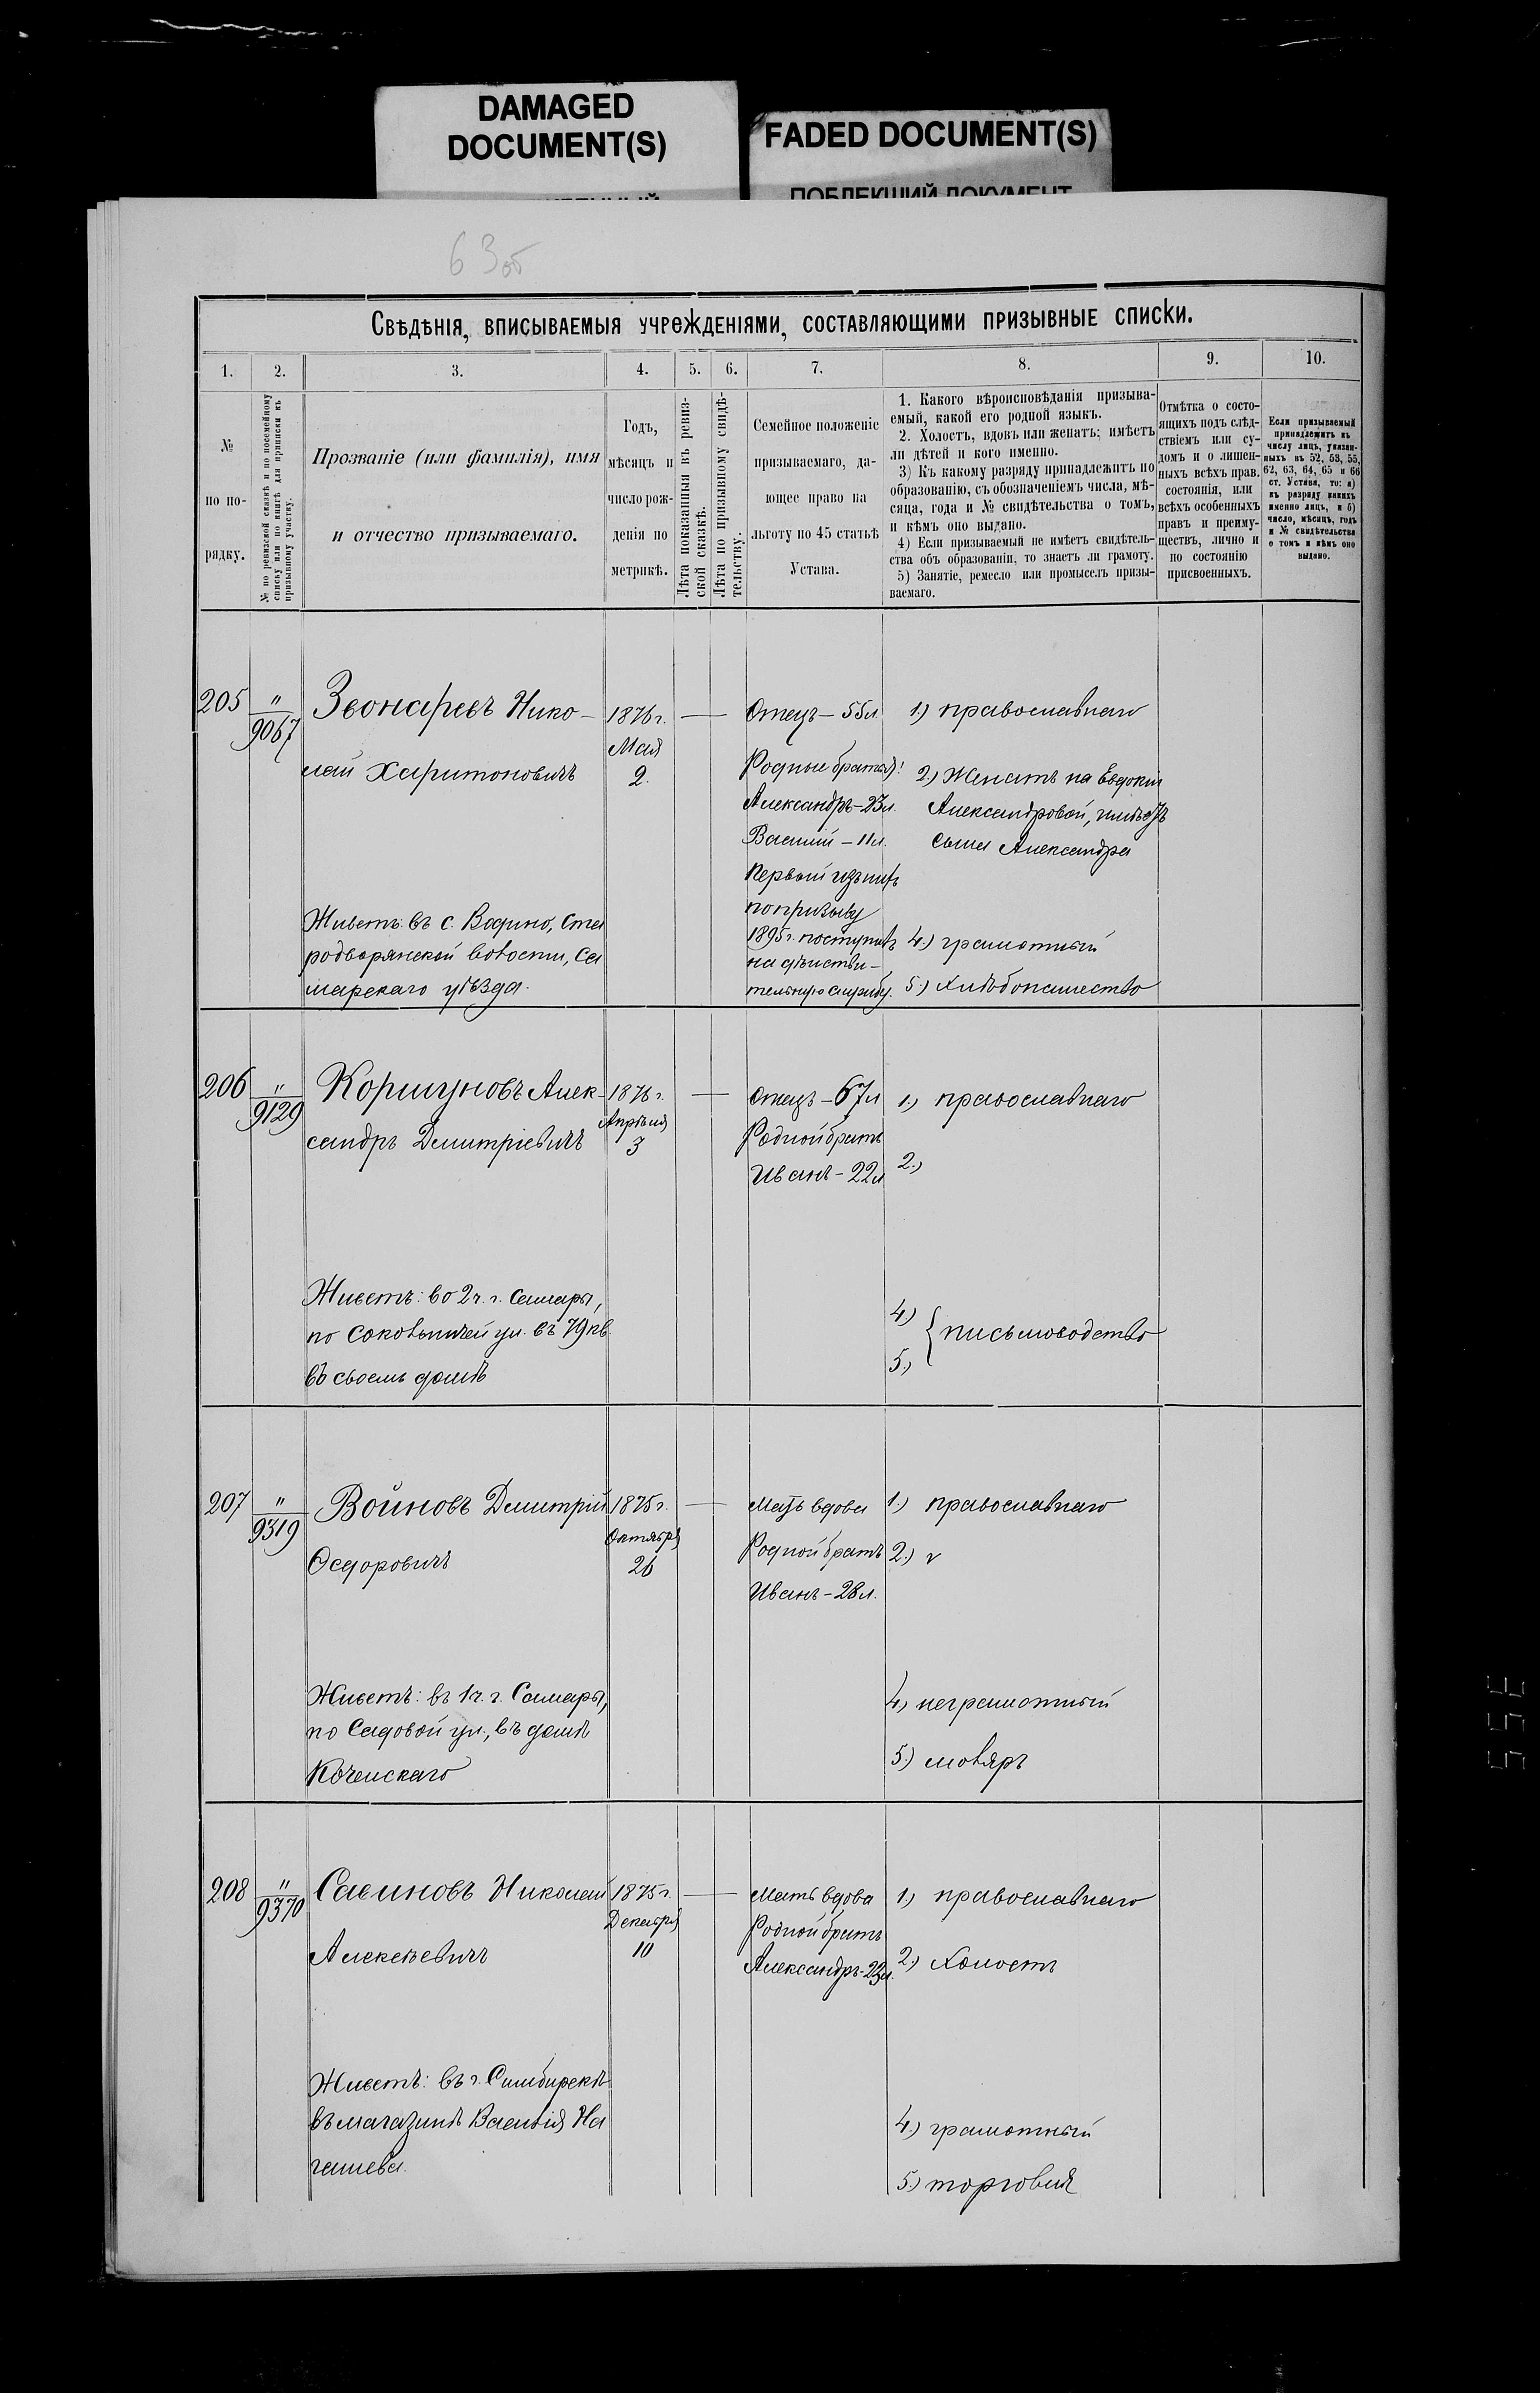 DAMAGED
DOCUMENT(S)
FADED DOCUMENT(S)
ПОБЛЕКШИЙ ДОКУМЕНТ
63об
Свѣдѣнія, вписываемыя учрежденіями, составляющими призывные списки.
1.
2.
3.
4.
5.
6.
7.
8.
9.
10.
№
по по-
рядку.
№ по ревизской сказкѣ и по посемейному
списку или по книгѣ для приписки къ
призывному участку.
Прозваніе (или фамилія), имя
и отчество призываемаго.
Годъ,
мѣсяцъ и
число рож-
денія по
метрикѣ.
Лѣта показанныя въ ревиз-
ской сказкѣ.
Лѣта по призывному свидѣ-
тельству.
Семейное положеніе
призываемаго, да-
ющее право на
льготу по 45 статьѣ
Устава.
1. Какого вѣроисповѣданія призыва-
емый, какой его родной языкъ.
2. Холостъ, вдовъ или женатъ; имѣетъ
ли дѣтей и кого именно.
3) Къ какому разряду принадлежитъ по
образованію, съ обозначеніемъ числа, мѣ-
сяца, года и № свидѣтельства о томъ,
и кѣмъ оно выдано.
4) Если призываемый не имѣетъ свидѣтель-
ства объ образованіи, то знаетъ ли грамоту.
5) Занятіе, ремесло или промыселъ призы-
ваемаго.
Отмѣтка о состо-
ящихъ подъ слѣд-
ствіемъ или су-
домъ и о лишен-
ныхъ всѣхъ прав.
состоянія, или
всѣхъ особенныхъ
правъ и преиму-
ществъ, лично и
по состоянію
присвоенныхъ.
Если призываемый
принадлежитъ къ
числу лицъ, указан-
ныхъ въ 52, 53, 55,
62, 63, 64, 65 и 66
ст. Устава, то: а)
къ разряду какихъ
именно лицъ, и б)
число, мѣсяцъ, годъ
и № свидѣтельства
о томъ и кѣмъ оно
выдано.
205
"
9067
Звонаревъ Нико-
лай Харитоновичъ
Живетъ: въ с. Водино, Ста
родворянской волости, Са
марскаго уѣзда.
1876 г.
Мая
2.
Отецъ - 55 л
Родные братья:
Александръ - 23 л.
Василій - 11 л.
Первый изъ нихъ
по призыву
1895 г. поступилъ
на дѣйстви-
тельную службу.
1) православнаго
2.) Женатъ на Евдокіи
Александровой, имѣетъ
сына Александра
4.) грамотный
5.) хлѣбопашество
206
"
9129
Коршуновъ Алек-
сандръ Димитріевичъ
Живетъ: во 2 ч. г. Самары,
по Сокольничей ул. въ 79 кв
въ своемъ домѣ
1876 г.
Апрѣля
3
Отецъ - 67 л
Родной братъ
Иванъ - 22 л
1.) православнаго
2.)
4.)
5.)
{ письмоводство
207
"
9319
Войновъ Димитрій
Ѳедоровичъ
Живетъ: въ 1 ч. г. Самары,
по Садовой ул., въ домѣ
1875 г.
Октября
26
Мать вдова
Родной братъ
Иванъ - 28 л.
1.) православнаго
2.) v
4.) неграмотный
5.) моляръ
208
"
9370
Савиновъ Николай
Алексѣевичъ
Живетъ: въ г. Симбирскѣ
въ магазинѣ Василія Ча
1875 г.
Декабря
10
Мать вдова
Родной братъ
Александръ - 23 л.
1.) православнаго
2.) Холостъ
4.) грамотный
5.) торговля
355